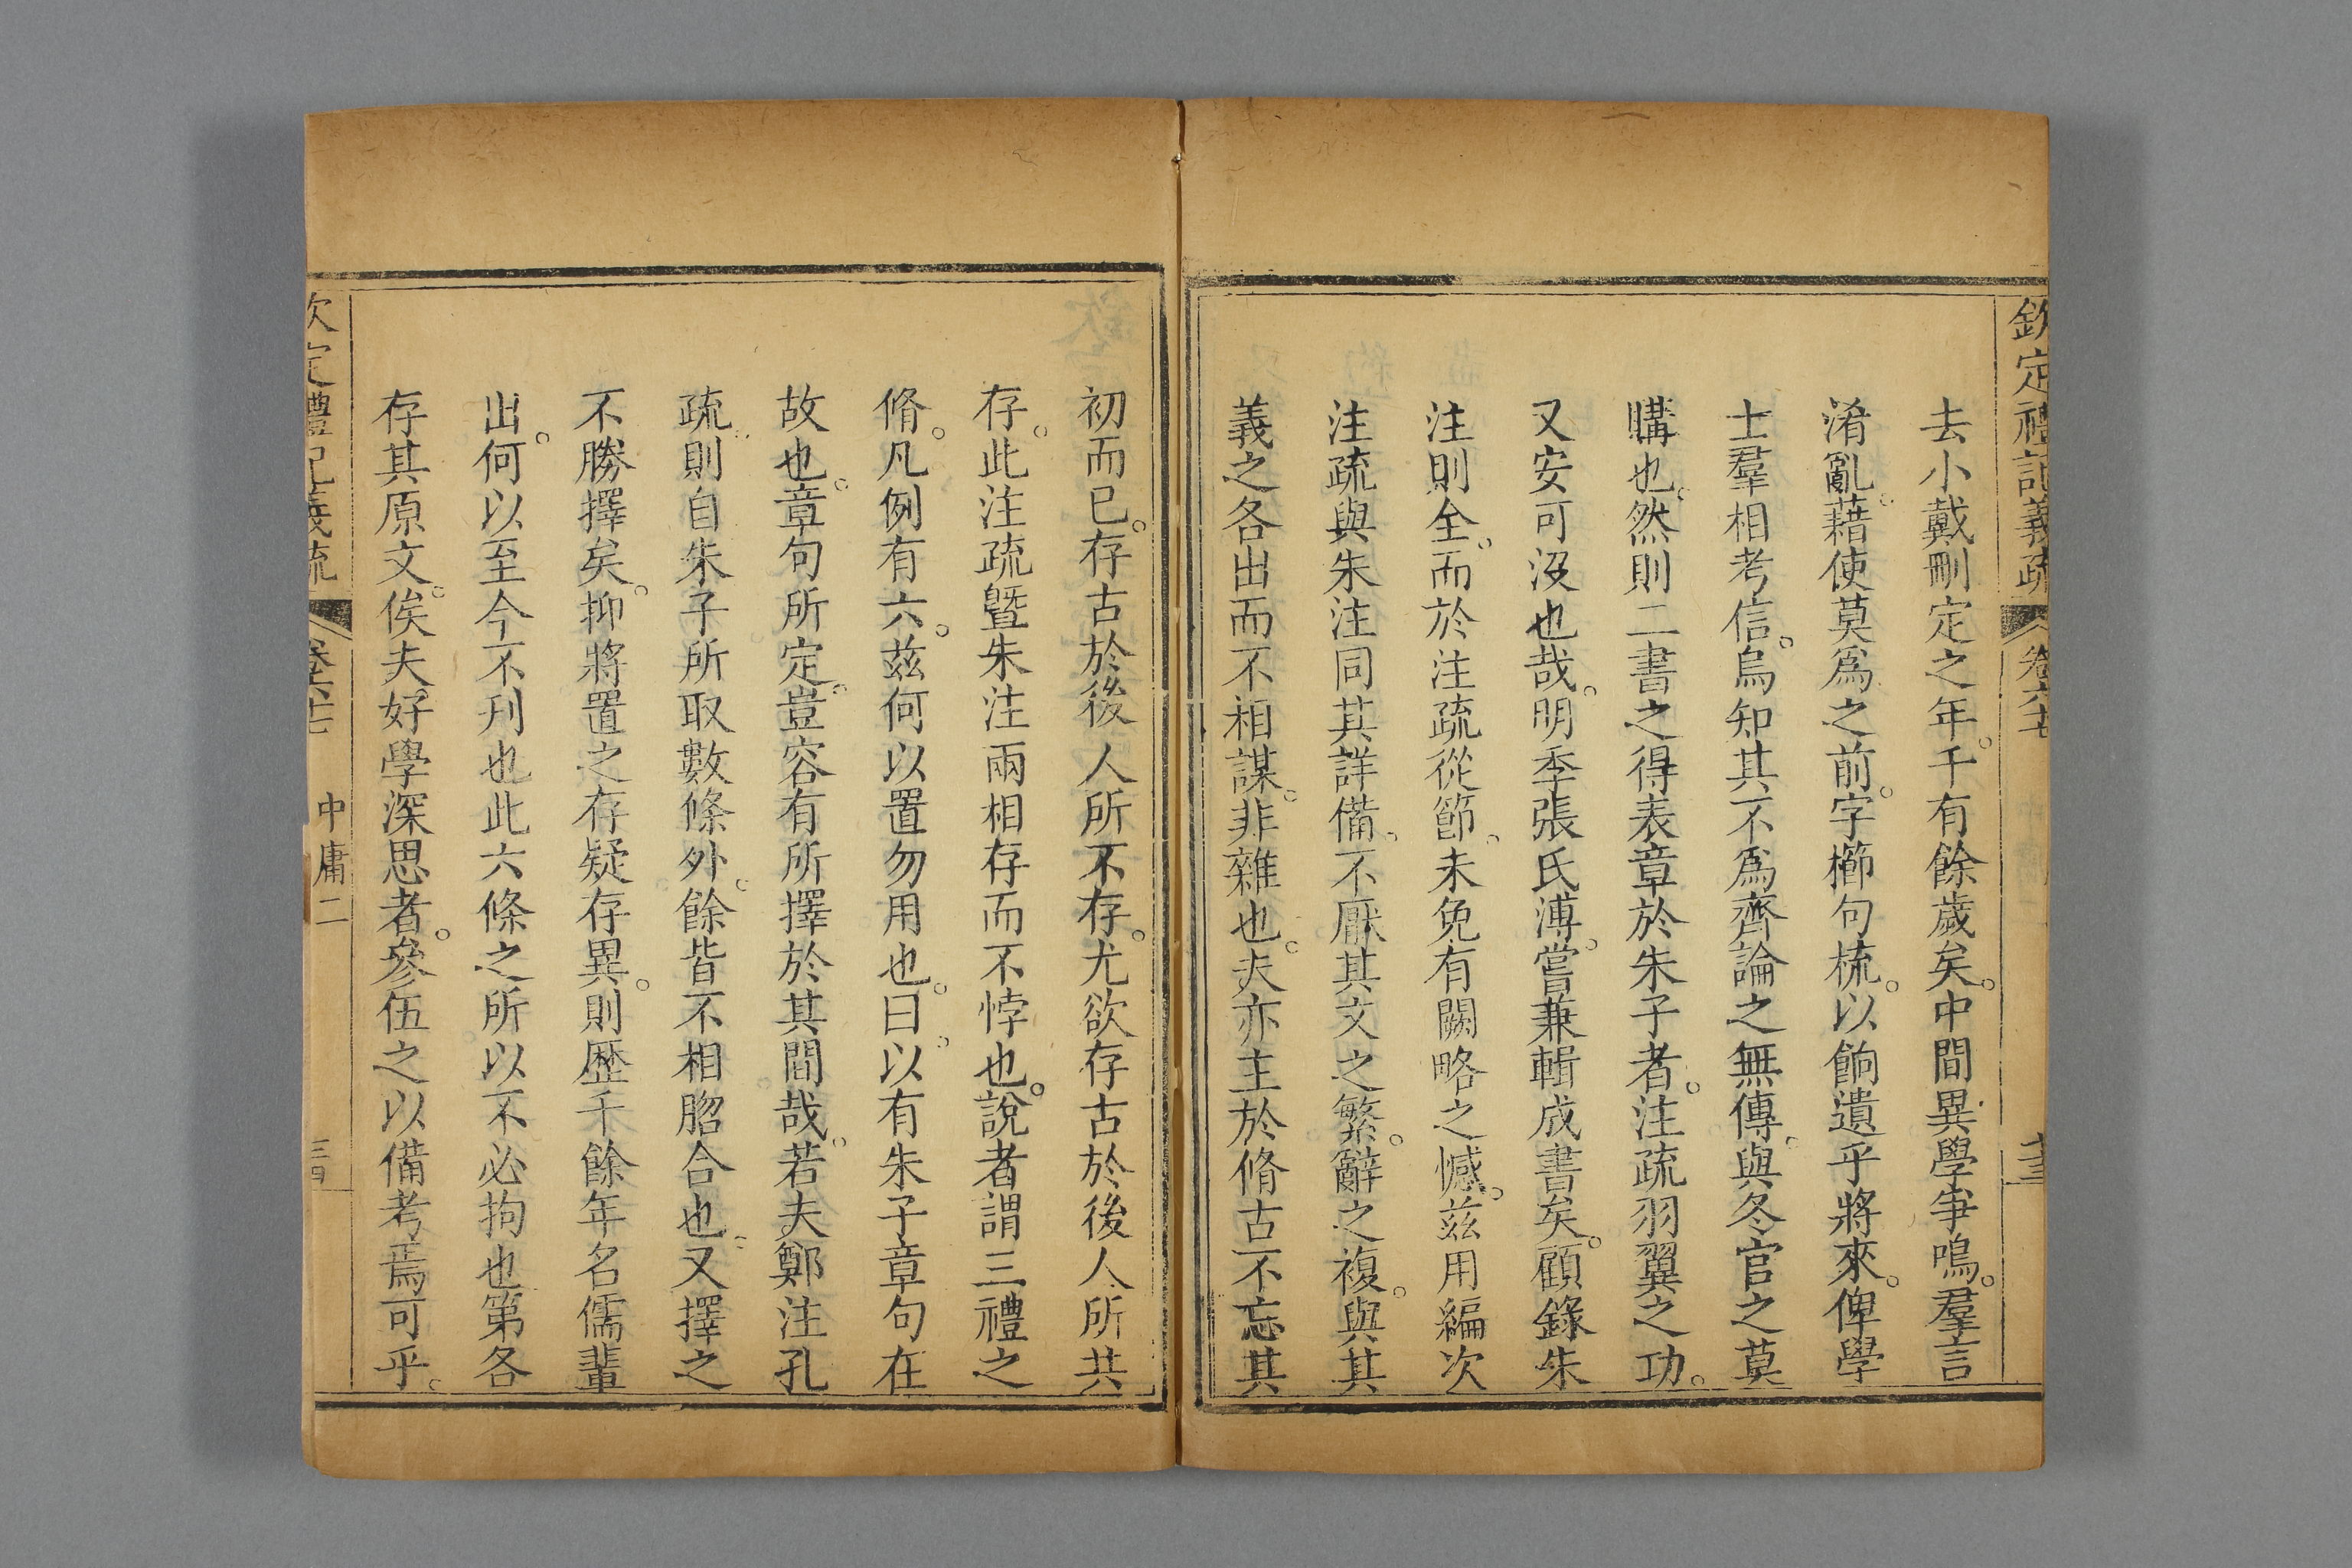 欽定禮記義疏 卷六十七
去小戴刪定之年。千有餘歲矣。中間異學爭鳴。羣言
淆亂。藉使莫爲之前。字櫛句梳。以餉遺乎將來。俾學
士羣相考信。烏知其不爲齊論之無傳。與冬官之莫
購也。然則二書之得表章於朱子者。注疏羽翼之功。
又安可沒也哉。明季張氏溥。嘗兼輯成書矣。顧錄朱
注則全。而於注疏從節。未免有闕略之憾。茲用編次
注疏與朱注同其詳備。不厭其文之繁。辭之複。與其
義之各出而不相謀。非雜也。夫亦主於脩古不忘其
初而已。存古於後人所不存。尤欲存古於後人所共
存。此注疏曁朱注兩相存而不悖也。說者謂三禮之
脩。凡例有六。茲何以置勿用也。曰。以有朱子章句在
故也。章句所定。豈容有所擇於其間哉。若夫鄭注孔
疏。則自朱子所取數條外。餘皆不相脗合也。又擇之
不勝擇矣。抑將置之存疑存異。則歷千餘年名儒輩
出。何以至今不刋也此六條之所以不必拘也第各
存其原文。俟夫好學深思者。參伍之以備考焉可乎。
欽定禮記義疏 卷六十七 中庸二